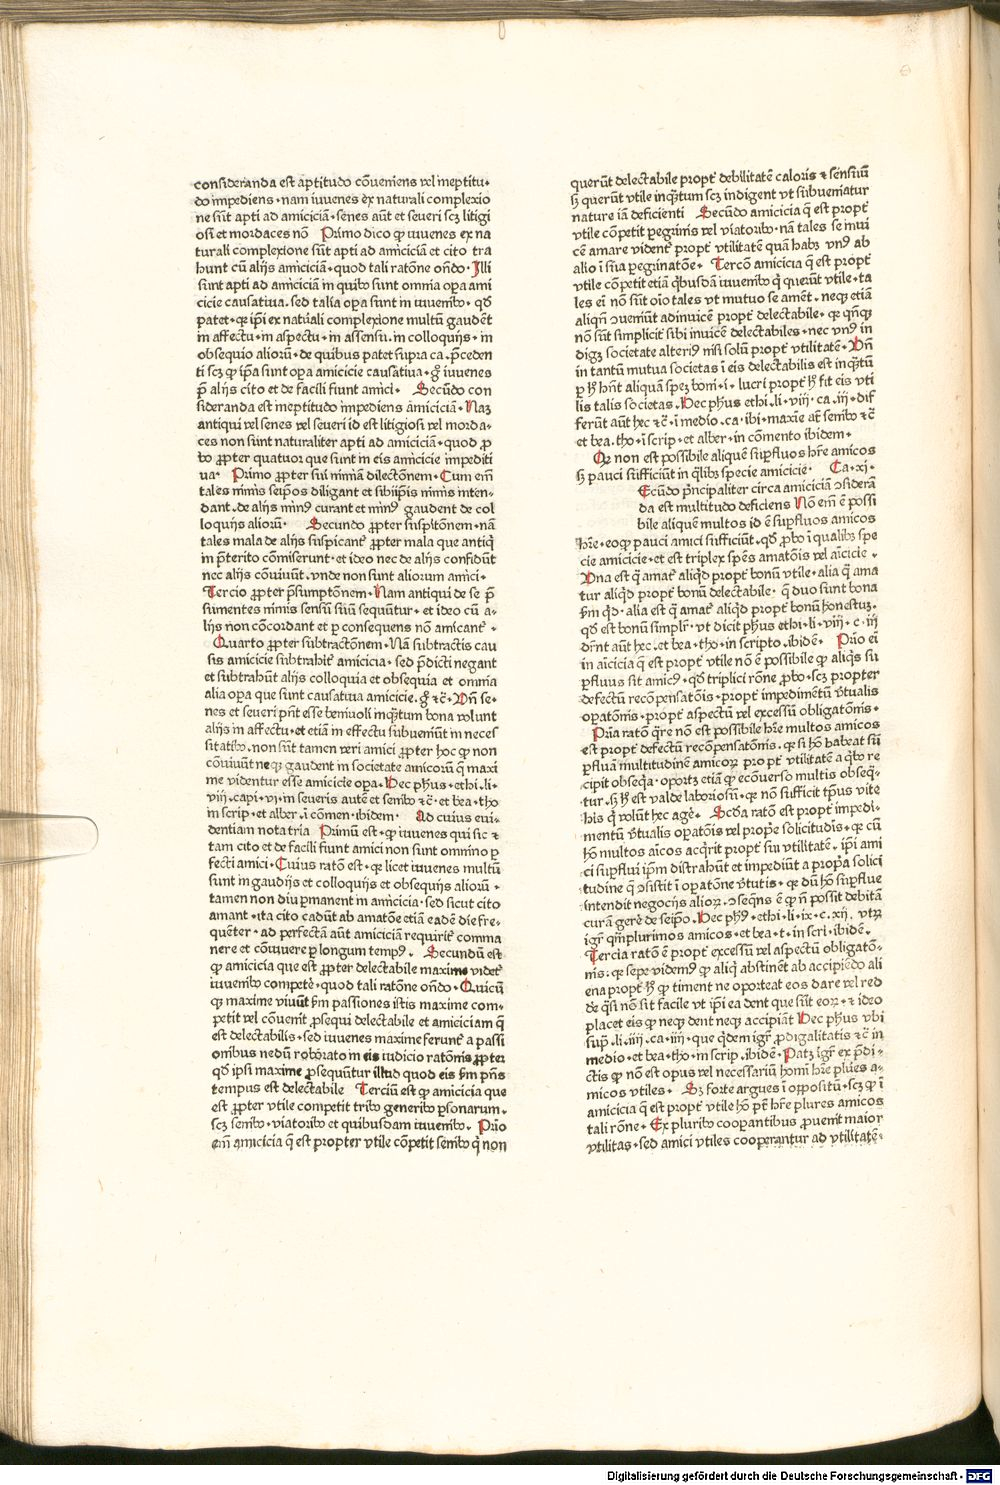 consideranda est aptitudo cōueniens vel ineptitu-
do impediens. nam iuuenes ex naturali complexio
ne sūt apti ad amiciciā. senes aūt et seueri scꝫ litigi
osi et mordaces nō Primo dico ꝙ iuuenes ex na
turali complexione sūt apti ad amiciciā et cito tra
hunt cū alijs amiciciā. quod tali ratōne oñdo. Illi
sunt apti ad amiciciā in quibꝰ sunt omnia oꝑa ami
cicie causatiua. sed talia oꝑa sunt in iuuenibꝰ. qď
patet. qꝛ ipī ex natūali complexione multū gaudēt
in affectu. in aspectu. in assensu. in colloquijs. in
obsequio alioꝝ. de quibus patet supra ca. p̄ceden
ti scꝫ ꝙ ip̄a sunt oꝑa amicicie causatiua. gͦ iuuenes
p̄ alijs cito et de facili fiunt amici. Secūdo con
sideranda est ineptitudo impediens amiciciā. Naꝫ
antiqui vel senes vel seueri id est litigiosi vel morda-
ces non sunt naturaliter apti ad amiciciā. quod ꝓ
bo ꝓpter quatuor que sunt in eis amicicie impediti
ua. Primo ꝓpter sui nimiā dilectōnem. Cum em̄
tales nimis seip̄os diligant et sibijp̄is nimis inten-
dant. de alijs minꝰ curant et minꝰ gaudent de col
loquijs alioꝝ. Secundo ꝓpter suspitōnem. nā
tales mala de alijs suspicant̄ ꝓpter mala que antiq̄
in p̄terito cōmiserunt. et ideo nec de alijs confidūt
nec alijs cōuiuūt. vnde non sunt aliorum amici.
Tercio ꝓpter p̄sumptōnem. Nam antiqui de se p̄
sumentes nimis sensū suū sequūtur. et ideo cū a-
lijs non cōcordant et ꝑ consequens nō amicant̄.
Quarto ꝓpter subtractōnem. Nā subtractis cau
sis amicicie subtrahit̄ amicicia. sed p̄dicti negant
et subtrahūt alijs colloquia et obsequia et omnia
alia oꝑa que sunt causatiua amicicie. gͦ ⁊c̄. Vn̄ se-
nes et seueri pn̄t esse beniuoli inqͣtum bona volunt
alijs in affectu. et etiā in effectu subueniūt in neces
sitatibꝰ. non sūt tamen veri amici ꝓpter hoc ꝙ non
cōuiuūt neqꝫ gaudent in societate amicorū q̄ maxi
me videntur esse amicicie oꝑa. Hec phus. ethi. li.
viij. capi. vi. in seueris autē et senibꝰ ⁊c̄. et bea. tho
in scrip. et alber. i cōmen. ibidem. Ad cuius eui-
dentiam nota tria Primū est. ꝙ iuuenes qui sic ⁊
tam cito et de facili fiunt amici non sunt omnino ꝑ
fecti amici. Cuius ratō est. qꝛ licet iuuenes multū
sunt in gaudijs et colloquijs et obsequijs alioꝝ.
tamen non diu ꝑmanent in amicicia. sed sicut cito
amant. ita cito cadūt ab amatōe etiā eadē die fre-
quēter. ad perfectā aūt amiciciā requirit̄ comma
nere et cōuiuere ꝑ longum tempꝰ. Secundū est
ꝙ amicicia que est ꝓpter delectabile maxime videt̄
iuuenibꝰ competē. quod tali ratōne oñdo. Quicū
ꝙ maxime viuūt ẜm passiones istis maxime com-
petit vel cōuenit ꝓsequi delectabile et amiciciam q̄
est delectabilis. sed iuuenes maxime ferunt̄ a passi
onibus nedū roboratꝰ in eis iudicio ratōnis ꝓpter
qď ipsi maxime ꝓsequūtur illud quod eis ẜm p̄ns
tempus est delectabile Terciū est ꝙ amicicia que
est ꝓpter vtile competit tribꝰ generibꝰ ꝑsonarum.
scꝫ senibꝰ. viatoribꝰ et quibusdam iuuenibꝰ. Prīo
em̄ amicicia q̄ est propter vtile cōpetit senibꝰ qꝛ non
querūt delectabile propt̄ debilitatē caloris ⁊ sensuū
sꝫ querūt vtile inqͣtum scꝫ indigent vt subueniatur
nature iā deficienti Secūdo amicicia q̄ est propt̄
vtile cōpetit peregrinis vel viatoribꝰ. nā tales se inui
cē amare vident̄ propt̄ vtilitatē quā habꝫ vnꝰ ab
alio ī sua peginatōe. Tercō amicicia q̄ est propt̄
vtile cōpetit etiā qͥbusdā iuuenibꝰ qͥ querūt vtile. ta
les ei nō sūt oīo tales vt mutuo se amēt. neqꝫ etiā
aliqn̄ ꝯueniūt adinuicē propt̄ delectabile. qꝛ qn̄qꝫ
nō sūt simplicit̄ sibi inuicē delectabiles. nec vnꝰ in
digꝫ societate alteriꝰ nisi solū propt̄ vtilitatē. Vn̄
in tantū mutua societas ī eis delectabilis est inqͣtū
ꝑ hͦ hn̄t aliquā speꝫ boni. i. lucri propt̄ hͦ fit eis vti
lis talis societas. Hec phus ethi. li. viij. ca. iij. dif
ferūt aūt hec ⁊c̄. ī medio. ca. ibi. maxīe at̄ senibꝰ ⁊c̄
et bea. tho. ī scrip. et alber. in cōmento ibidem.
Qꝛ non est possibile aliquē suꝑfluos hr̄e amicos
sꝫ pauci sufficiūt in qͥlibꝫ specie amicicie. Ca. xi.
Ecūdo p̄ncipaliter circa amiciciā ꝯsiderā
da est multitudo deficiens Nō em̄ ē possi
bile aliquē multos id ē suꝑfluos amicos
hr̄e. eo ꝙ pauci amici sufficiūt. qď ꝓbo ī qualibꝫ spe
cie amicicie. et est triplex spēs amatōis vel aīcicie.
Vna est q̄ amat̄ aliqͥd propt̄ bonū vtile. alia q̄ ama
tur aliqͥd propt̄ bonū delectabile. q̄ duo sunt bona
ẜm qͥd. alia est q̄ amat̄ aliqͥd propt̄ bonū honestuꝫ.
qď est bonū simplr̄. vt dicit phus ethi. li. viij. c. iij
dr̄nt aūt hec. et bea. tho. in scripto. ibidē. Prīo ei
in aīcicia q̄ est propt̄ vtile nō ē possibile ꝙ aliqͥs su
ꝑfluus sit amicꝰ. qď triplici rōne ꝓbo. scꝫ propter
defectū recōpensatōis. propt̄ impedimentū v̄tualis
oꝑatōnis. propt̄ aspectū vel excessū obligatōnis.
Prīa ratō qͣre nō est possibile hr̄e multos amicos
est propt̄ defectū recōpensatōnis. qꝛ si hō habeat suꝰ
ꝑfluā multitudinē amicoꝝ propt̄ vtilitatē a qͥbꝰ re
cipit obseqͥa. oportꝫ etiā ꝙ ecōuerso multis obseqͣ-
tur. sꝫ hͦ est valde laboriosū. qꝛ nō sufficit tp̄us vite
his q̄ volūt hec agē. Scd̄a ratō est propt̄ impedi-
mentū v̄tualis oꝑatōis vel prop̄e solicitudīs. qꝛ cū
hō multos aīcos acqͥrit propt̄ sui vtilitatē. ip̄i ami
ci suꝑflui ip̄m distrahūt et impediūt a prop̄a solici
tudine q̄ ꝯsistit ī oꝑatōne v̄tutis. qꝛ dū hō suꝑflue
intendit negocijs alioꝝ. ꝯseqn̄s ē ꝙ n̄ possit debitā
curā gerē de seip̄o. Hec phꝰ. ethi. li. ix. c. xij. vtꝝ
igr̄ qm̄plurimos amicos. et bea. t. in scri. ibidē.
Tercia ratō ē propt̄ excessū vel aspectū obligatō-
nis. qꝛ sepe videmꝰ ꝙ aliqͥ abstinēt ab accipiēdo ali
ena propt̄ hͦ ꝙ timent ne oporteat eos dare vel red
de qͣsi nō sit facile vt ip̄i ea dent que sūt eoꝝ. ⁊ ideo
placet eis ꝙ neqꝫ dent neqꝫ accipiāt Hec phus vbi
sup̄. li. iiij. ca. iiij. que qͥdem igr̄ ꝓdigalitatis ⁊c̄ in
medio. et bea. tho. in scrip. ibidē. Patꝫ igr̄ ex p̄di-
ctis ꝙ nō est opus vel necessariū homī hr̄e plūes a-
micos vtiles. Sꝫ forte argues ī oppositū. scꝫ ꝙ ī
amicicia q̄ est propt̄ vtile hō pt̄ hr̄e plures amicos
tali rōne. Ex pluribꝰ cooꝑantibus ꝓuenit maior
vtilitas. sed amici vtiles cooperantur ad vtilitatē.
Digitalisierung gefördert durch die Deutsche Forschungsgemeinschaft - DFG